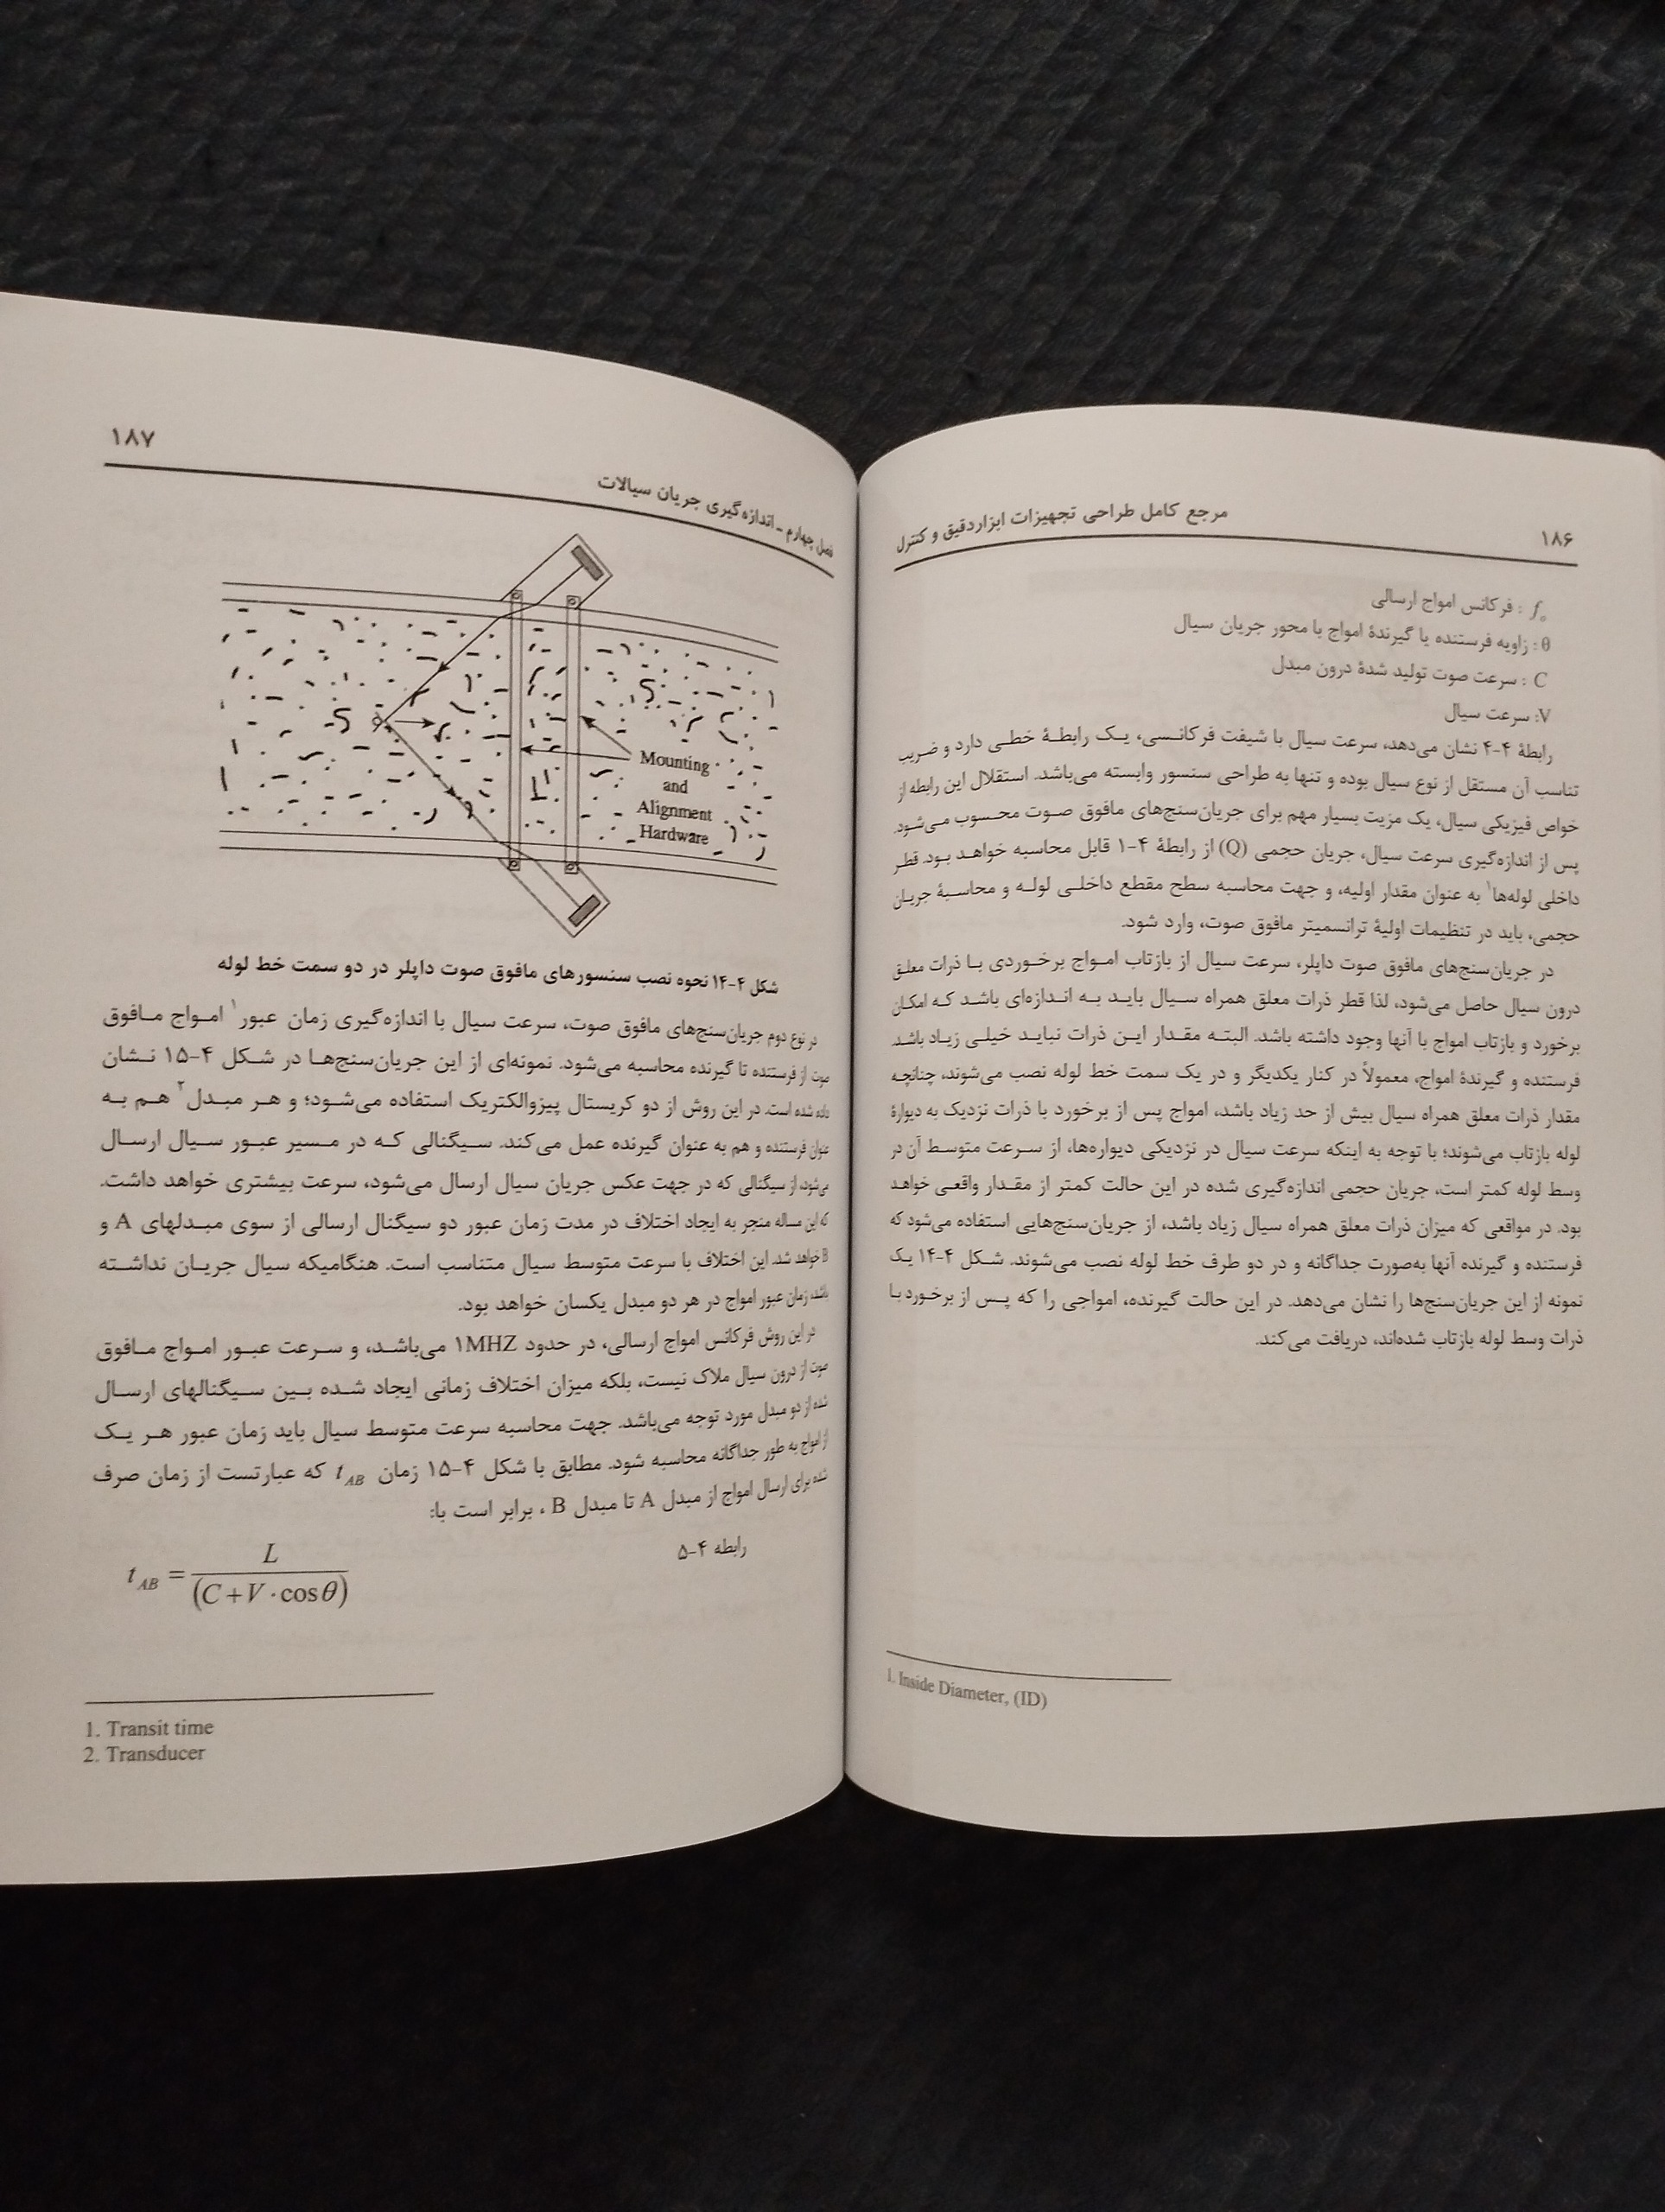 ۱۸۶
مرجع کامل طراحی تجهیزات ابزاردقیق و کنترل
f₀ : فرکانس امواج ارسالی
θ : زاویه فرستنده یا گیرندهٔ امواج با محور جریان سیال
C : سرعت صوت تولید شدهٔ درون مبدل
V: سرعت سیال
رابطهٔ ۴-۴ نشان می‌دهد، سرعت سیال با شیفت فرکانسی، یک رابطهٔ خطی دارد و ضریب
تناسب آن مستقل از نوع سیال بوده و تنها به طراحی سنسور وابسته می‌باشد. استقلال این رابطه از
خواص فیزیکی سیال، یک مزیت بسیار مهم برای جریان‌سنج‌های مافوق صوت محسوب می‌شود.
پس از اندازه‌گیری سرعت سیال، جریان حجمی (Q) از رابطهٔ ۴-۱ قابل محاسبه خواهد بود. قطر
داخلی لوله‌ها۱ به عنوان مقدار اولیه، و جهت محاسبه سطح مقطع داخلی لوله و محاسبهٔ جریان
حجمی، باید در تنظیمات اولیهٔ ترانسمیتر مافوق صوت، وارد شود.
در جریان‌سنج‌های مافوق صوت داپلر، سرعت سیال از بازتاب امواج برخوردی با ذرات معلق
درون سیال حاصل می‌شود، لذا قطر ذرات معلق همراه سیال باید به اندازه‌ای باشد که امکان
برخورد و بازتاب امواج با آنها وجود داشته باشد. البته مقدار این ذرات نباید خیلی زیاد باشد.
فرستنده و گیرندهٔ امواج، معمولاً در کنار یکدیگر و در یک سمت خط لوله نصب می‌شوند، چنانچه
مقدار ذرات معلق همراه سیال بیش از حد زیاد باشد، امواج پس از برخورد با ذرات نزدیک به دیوارهٔ
لوله بازتاب می‌شوند؛ با توجه به اینکه سرعت سیال در نزدیکی دیواره‌ها، از سرعت متوسط آن در
وسط لوله کمتر است، جریان حجمی اندازه‌گیری شده در این حالت کمتر از مقدار واقعی خواهد
بود. در مواقعی که میزان ذرات معلق همراه سیال زیاد باشد، از جریان‌سنج‌هایی استفاده می‌شود که
فرستنده و گیرنده آنها به‌صورت جداگانه و در دو طرف خط لوله نصب می‌شوند. شکل ۴-۱۴ یک
نمونه از این جریان‌سنج‌ها را نشان می‌دهد. در این حالت گیرنده، امواجی را که پس از برخورد با
ذرات وسط لوله بازتاب شده‌اند، دریافت می‌کند.
1. Inside Diameter, (ID)
۱۸۷
فصل چهارم - اندازه‌گیری جریان سیالات
Mounting
and
Alignment
Hardware
شکل ۴-۱۴ نحوه نصب سنسورهای مافوق صوت داپلر در دو سمت خط لوله
در نوع دوم جریان‌سنج‌های مافوق صوت، سرعت سیال با اندازه‌گیری زمان عبور۱ امواج مافوق
صوت از فرستنده تا گیرنده محاسبه می‌شود. نمونه‌ای از این جریان‌سنج‌ها در شکل ۴-۱۵ نشان
داده شده است. در این روش از دو کریستال پیزوالکتریک استفاده می‌شود؛ و هر مبدل۲ هم به
عنوان فرستنده و هم به عنوان گیرنده عمل می‌کند. سیگنالی که در مسیر عبور سیال ارسال
می‌شود، از سیگنالی که در جهت عکس جریان سیال ارسال می‌شود، سرعت بیشتری خواهد داشت.
که این مساله منجر به ایجاد اختلاف در مدت زمان عبور دو سیگنال ارسالی از سوی مبدلهای A و
B خواهد شد. این اختلاف با سرعت متوسط سیال متناسب است. هنگامیکه سیال جریان نداشته
باشد، زمان عبور امواج در هر دو مبدل یکسان خواهد بود.
در این روش فرکانس امواج ارسالی، در حدود ۱MHZ می‌باشد، و سرعت عبور امواج مافوق
صوت از درون سیال ملاک نیست، بلکه میزان اختلاف زمانی ایجاد شده بین سیگنالهای ارسال
شده از دو مبدل مورد توجه می‌باشد. جهت محاسبه سرعت متوسط سیال باید زمان عبور هر یک
از امواج به طور جداگانه محاسبه شود. مطابق با شکل ۴-۱۵ زمان t_AB که عبارتست از زمان صرف
شده برای ارسال امواج از مبدل A تا مبدل B ، برابر است با:
رابطه ۴-۵
t_AB = L / (C + V · cos θ)
1. Transit time
2. Transducer